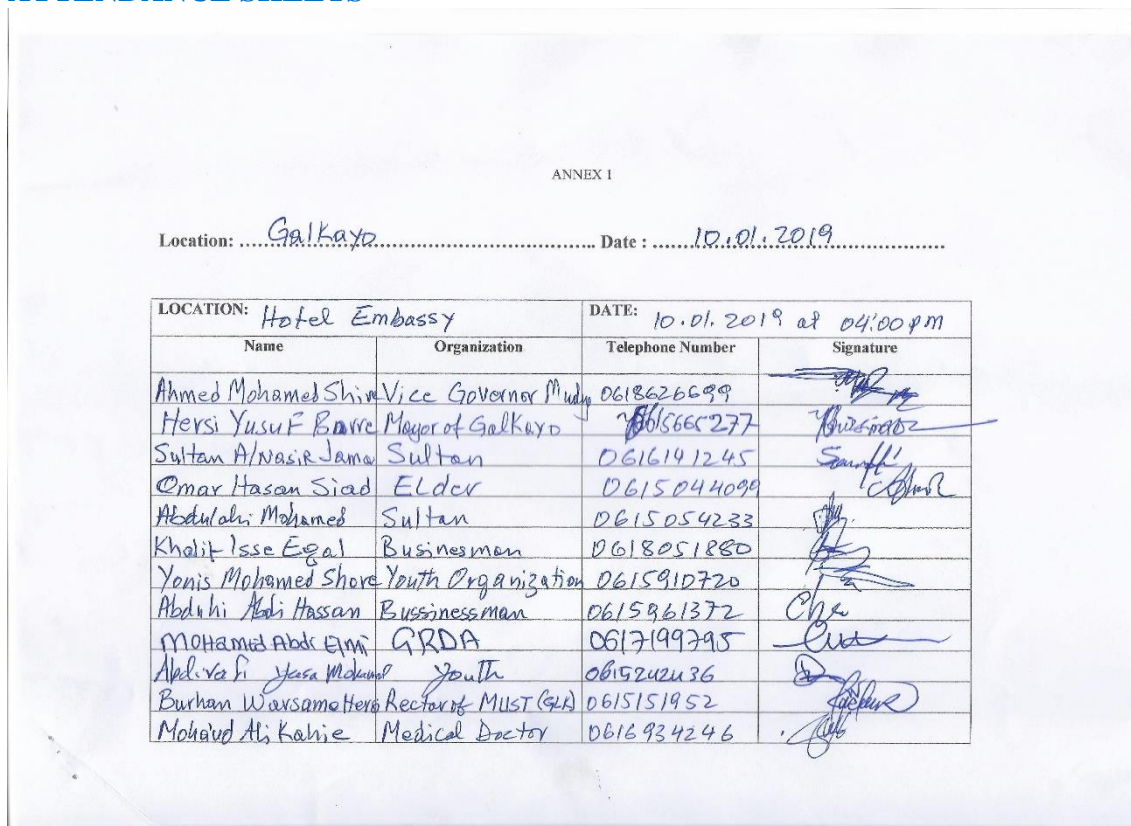 ATTENDANCE SHEETS
ANNEX 1
Location: Galkayo Date : 10.01.2019
LOCATION: Hotel Embassy DATE: 10.01.2019 at 04:00 pm
Name Organization Telephone Number Signature
Ahmed Mohamed Shire Vice Governor Mudug 0618626699
Hersi Yusuf Barre Mayor of Galkayo 0615665277
Sultan A/Nasir Jama Sultan 0616141245
Omar Hasan Siad ELder 0615044099
Abdulahi Mohamed Sultan 0615054233
Khalif Isse Egal Businesman 0618051880
Yonis Mohamed Shore Youth Organization 0615910720
Abduhi Abdi Hassan Bussinessman 0615961372
MOHamed Abdi Elmi GRDA 0617199795
Yusa Youth
Burhan Warsame Hersi Rector of MUST (GLK) 0615151952
Ali Kahie Medical Doctor 0616934246